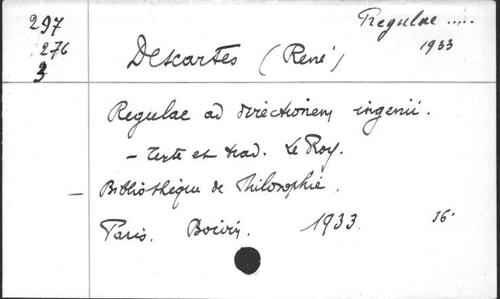 297
276
3
Regulae .....
1933
Descartes (René)
Regulae ad directionem ingenii.
- Texte et trad. Le Roy.
- Bibliothèque de Philosophie.
Paris. Boivin. 1933. 16°